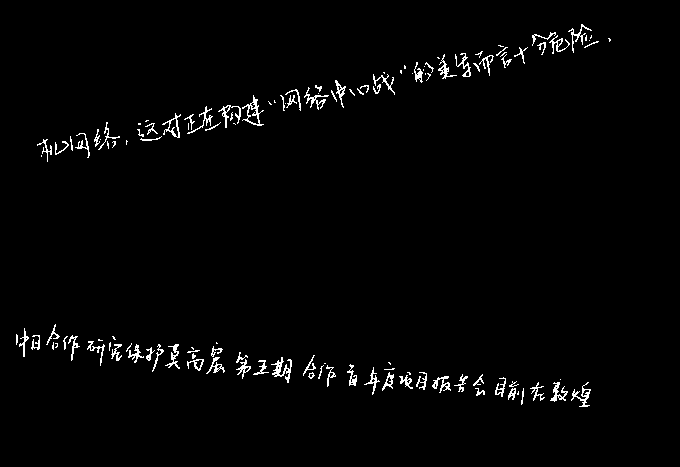 机网络，这对正在构建“网络中心战”的美军而言十分危险．
中日合作研究保护莫高窟第五期合作首年度项目报告会目前在敦煌